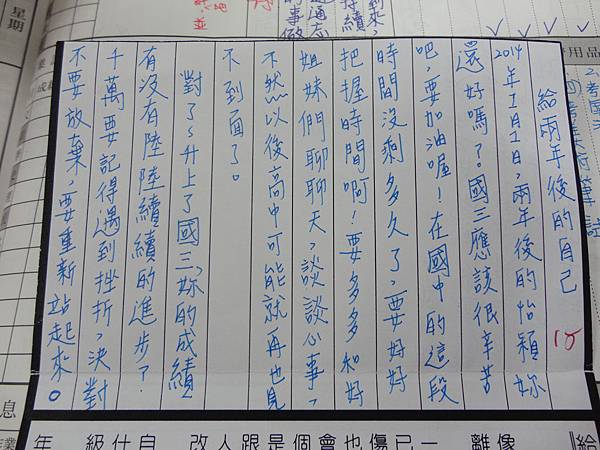 給兩年後的自己
2014年1月1日,兩年後的怡穎妳
還好嗎?國三應該很辛苦
吧,要加油喔!在國中的這段
時間沒剩多久了,要好好
把握時間啊!要多多和好
姐妹們聊聊天,談談心事,
不然~以後高中可能就再也見
不到面了。
對了~升上了國三,妳的成績
有沒有陸陸續續的進步?
千萬要記得遇到挫折,決對
不要放棄,要重新站起來。
10
星期
息